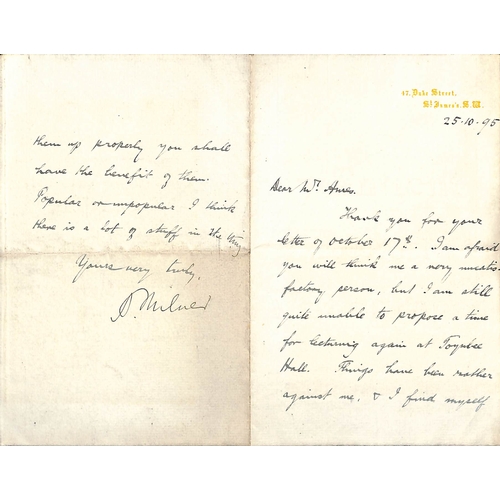 47, Duke Street,
St James's. S.W.
25·10·95
Dear Mr. Ames.
Thank you for your
letter of October 17th. I am afraid
you will think me a very unsatis-
factory person, but I am still
quite unable to propose a time
for lecturing again at Toynbee
Hall. Things have been rather
against me, & I find myself
them up properly you shall
have the benefit of them.
Popular or unpopular I think
there is a lot of stuff in the thing
Yours very truly,
A. Milner